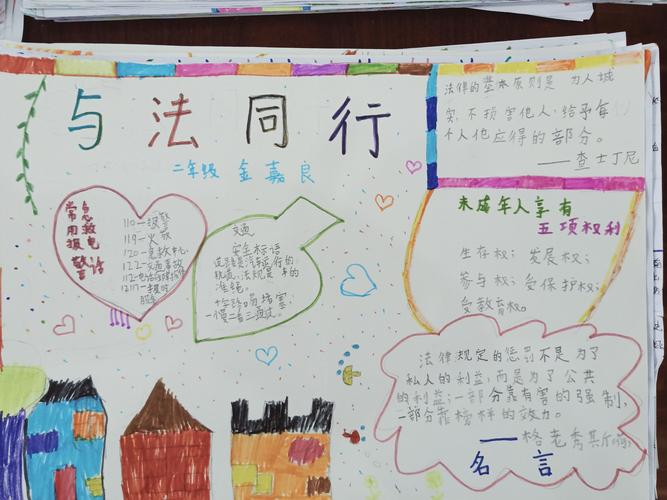 与法同行
二年级 金嘉良
法律的基本原则是 为人诚
实,不损害他人,给予每
个人他应得的部分。
——查士丁尼
常用报警
急救电话
110—报警
119—火警
120—急救中心
122—交通事故
交通
安全标语
十字路口易堵塞:
一慢二看三通过。
未成年人享有
五项权利
生存权; 发展权;
参与权; 受保护权;
受教育权。
法律规定的惩罚不是为了
私人的利益,而是为了公共
的利益;一部分靠有害的强制,
一部分靠榜样的效力。
——格老秀斯
名言